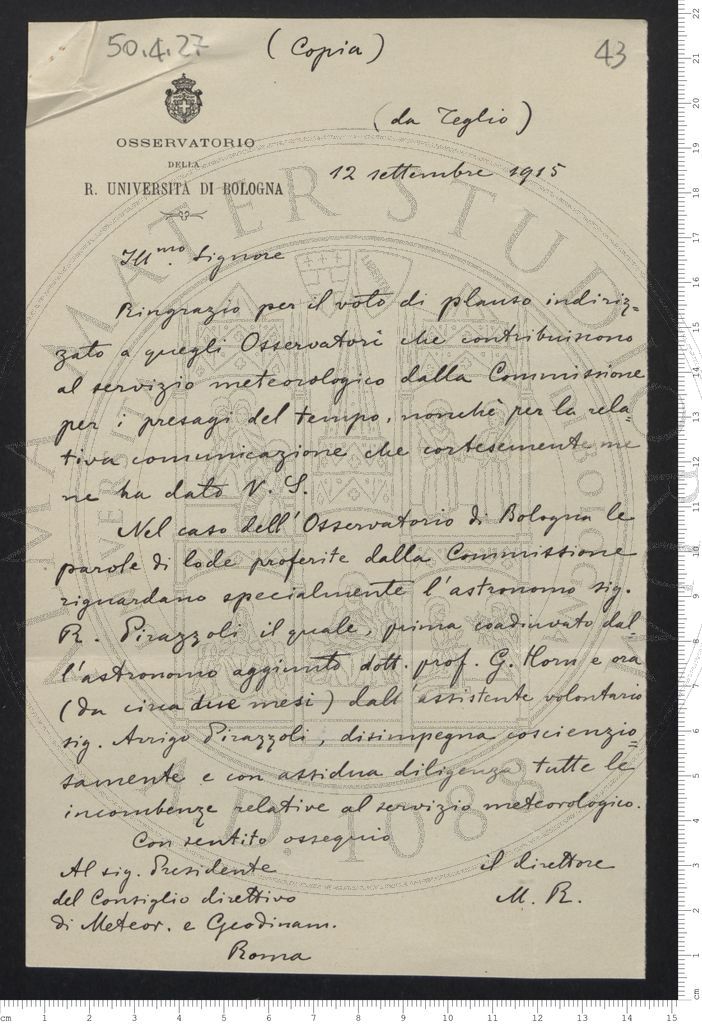 50.4.27
(Copia)
43
(da Teglio)
OSSERVATORIO
DELLA
R. UNIVERSITÀ DI BOLOGNA
12 settembre 1915
Ill.mo Signore
Ringrazio per il voto di plauso indiriz=
zato a quegli Osservatorî che contribuiscono
al servizio meteorologico dalla Commissione
per i presagi del tempo, nonchè per la rela=
tiva comunicazione che cortesemente me
ne ha dato V. S.
Nel caso dell'Osservatorio di Bologna le
parole di lode proferite dalla Commissione
riguardano specialmente l'astronomo sig.
R. Pirazzoli il quale, prima coadiuvato dal=
l'astronomo aggiunto dott. prof. G. Horn e ora
(da circa due mesi) dall'assistente volontario
sig. Arrigo Pirazzoli, disimpegna coscienzio=
samente e con assidua diligenza tutte le
incombenze relative al servizio meteorologico.
Con sentito ossequio
Al sig. Presidente
del Consiglio direttivo
di Meteor. e Geodinam.
Roma
il direttore
M. R.
ALMA MATER STUDIORUM
A.D. 1088